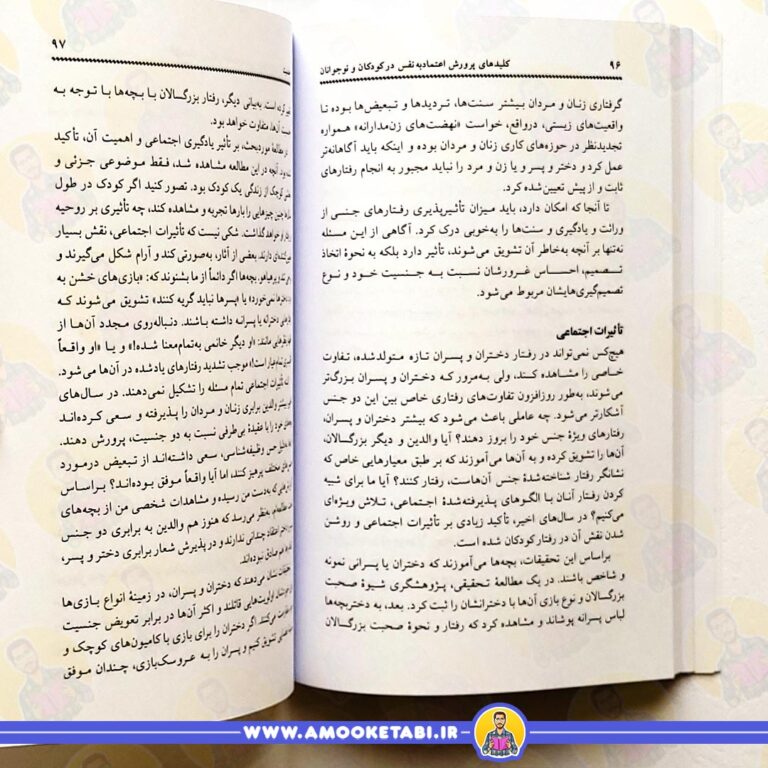 ۹۶ کلیدهای پرورش اعتمادبه‌نفس در کودکان و نوجوانان
گرفتاری زنان و مردان بیشتر سنت‌ها، تردیدها و تبعیض‌ها بوده تا
واقعیت‌های زیستی، درواقع، خواست «نهضت‌های زن‌مدارانه» همواره
تجدیدنظر در حوزه‌های کاری زنان و مردان بوده و اینکه باید آگاهانه‌تر
عمل کرد و دختر و پسر و یا زن و مرد را نباید مجبور به انجام رفتارهای
ثابت و از پیش تعیین‌شده کرد.
تا آنجا که امکان دارد، باید میزان تأثیرپذیری رفتارهای جنسی از
وراثت و یادگیری و سنت‌ها را به‌خوبی درک کرد. آگاهی از این مسئله
نه‌تنها بر آنچه به‌خاطر آن تشویق می‌شوند، تأثیر دارد بلکه به نحوهٔ اتخاذ
تصمیم، احساس غرورشان نسبت به جنسیت خود و نوع
تصمیم‌گیری‌هایشان مربوط می‌شود.
تأثیرات اجتماعی
هیچ‌کس نمی‌تواند در رفتار دختران و پسران تازه متولدشده، تفاوت
خاصی را مشاهده کند، ولی به‌مرور که دختران و پسران بزرگ‌تر
می‌شوند، به‌طور روزافزون تفاوت‌های رفتاری خاص بین این دو جنس
آشکارتر می‌شود. چه عاملی باعث می‌شود که بیشتر دختران و پسران،
رفتارهای ویژهٔ جنس خود را بروز دهند؟ آیا والدین و دیگر بزرگسالان،
آن‌ها را تشویق کرده و به آن‌ها می‌آموزند که بر طبق معیارهایی خاص که
نشانگر رفتار شناخته‌شدهٔ جنس آن‌هاست، رفتار کنند؟ آیا ما برای شبیه
کردن رفتار آنان با الگوهای پذیرفته‌شدهٔ اجتماعی، تلاش ویژه‌ای
می‌کنیم؟ در سال‌های اخیر، تأکید زیادی بر تأثیرات اجتماعی و روشن
شدن نقش آن در رفتار کودکان شده است.
براساس این تحقیقات، بچه‌ها می‌آموزند که دختران یا پسرانی نمونه
و شاخص باشند. در یک مطالعهٔ تحقیقی، پژوهشگری شیوهٔ صحبت
بزرگسالان و نوع بازی آن‌ها با دخترانشان را ثبت کرد. بعد، به دختربچه‌ها
لباس پسرانه پوشاند و مشاهده کرد که رفتار و نحوهٔ صحبت بزرگسالان
۹۷
کرده است. به‌بیانی دیگر، رفتار بزرگسالان با بچه‌ها با توجه به
آن‌ها متفاوت خواهد بود.
مطالعهٔ موردبحث، بر تأثیر یادگیری اجتماعی و اهمیت آن، تأکید
آنچه در این مطالعه مشاهده شد، فقط موضوعی جزئی و
کوچک از زندگی یک کودک بود. تصور کنید اگر کودک در طول
چنین چیزهایی را بارها تجربه و مشاهده کند، چه تأثیری بر روحیه
خواهد گذاشت. شکی نیست که تأثیرات اجتماعی، نقش بسیار
دارند. بعضی از آثار، به‌صورتی کند و آرام شکل می‌گیرند و
و پرهیاهو. بچه‌ها اگر دائماً از ما بشنوند که: «بازی‌های خشن به
نمی‌خورد» یا «پسرها نباید گریه کنند» تشویق می‌شوند که
دخترانه یا پسرانه داشته باشند. دنباله‌روی مجدد آن‌ها از
مانند: «او دیگر خانمی به‌تمام‌معنا شده!» و یا «او واقعاً
است!» موجب تشدید رفتارهای یادشده در آن‌ها می‌شود.
تأثیرات اجتماعی تمام مسئله را تشکیل نمی‌دهند. در سال‌های
بیشتر والدین برابری زنان و مردان را پذیرفته و سعی کرده‌اند
خود را با عقیدهٔ بی‌طرفی نسبت به دو جنسیت، پرورش دهند.
حس وظیفه‌شناسی، سعی داشته‌اند از تبعیض درمورد
مختلف پرهیز کنند، اما آیا واقعاً موفق بوده‌اند؟ براساس
که به‌دست من رسیده و مشاهدات شخصی من از بچه‌های
به‌نظر می‌رسد که هنوز هم والدین به برابری دو جنس
اعتقاد چندانی ندارند و در پذیرش شعار برابری دختر و پسر،
صادق نبوده‌اند.
نشان می‌دهند که دختران و پسران، در زمینهٔ انواع بازی‌ها
اولویت‌هایی قائلند و اکثر آن‌ها در برابر تعویض جنسیت
می‌کنند. اگر دختران را برای بازی با کامیون‌های کوچک و
تشویق کنیم و پسران را به عروسک‌بازی، چندان موفق
WWW.AMOOKETABI.IR